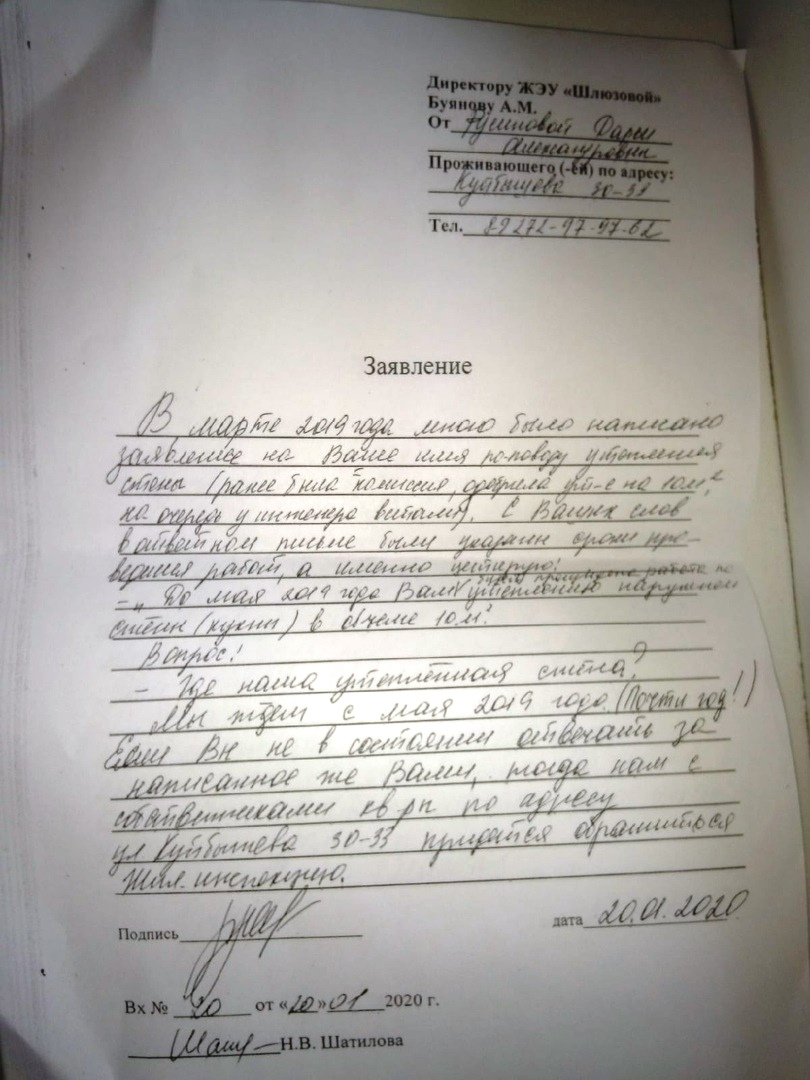 Директору ЖЭУ «Шлюзовой»
Буянову А.М.
От Русиновой Дарьи
Александровны
Проживающего (-ей) по адресу:
Куйбышева 30-33
Тел. 89272-97-97-62
Заявление
В марте 2019 года мною было написано
заявление на Ваше имя по-поводу утепления
стены (ранее была комиссия, одобрила ут-е на 10м²,
на очередь у инженера встали). С Ваших слов
в ответном письме были указаны сроки про-
ведения работ, а именно цитирую:
будет произведена работа по
- „До мая 2019 года Вам утеплению наружной
стены (кухни) в объеме 10м²
Вопрос!
- Где наша утеплённая стена?
Мы ждем с мая 2019 года. (Почти год!)
Если Вы не в состоянии отвечать за
написанное же Вами, тогда нам с
собственниками кв-ры по адресу
ул Куйбышева 30-33 придется обратиться
Жил. инспекцию.
Подпись
дата 20.01.2020
Вх № 20 от «20» 01 2020 г.
Н.В. Шатилова